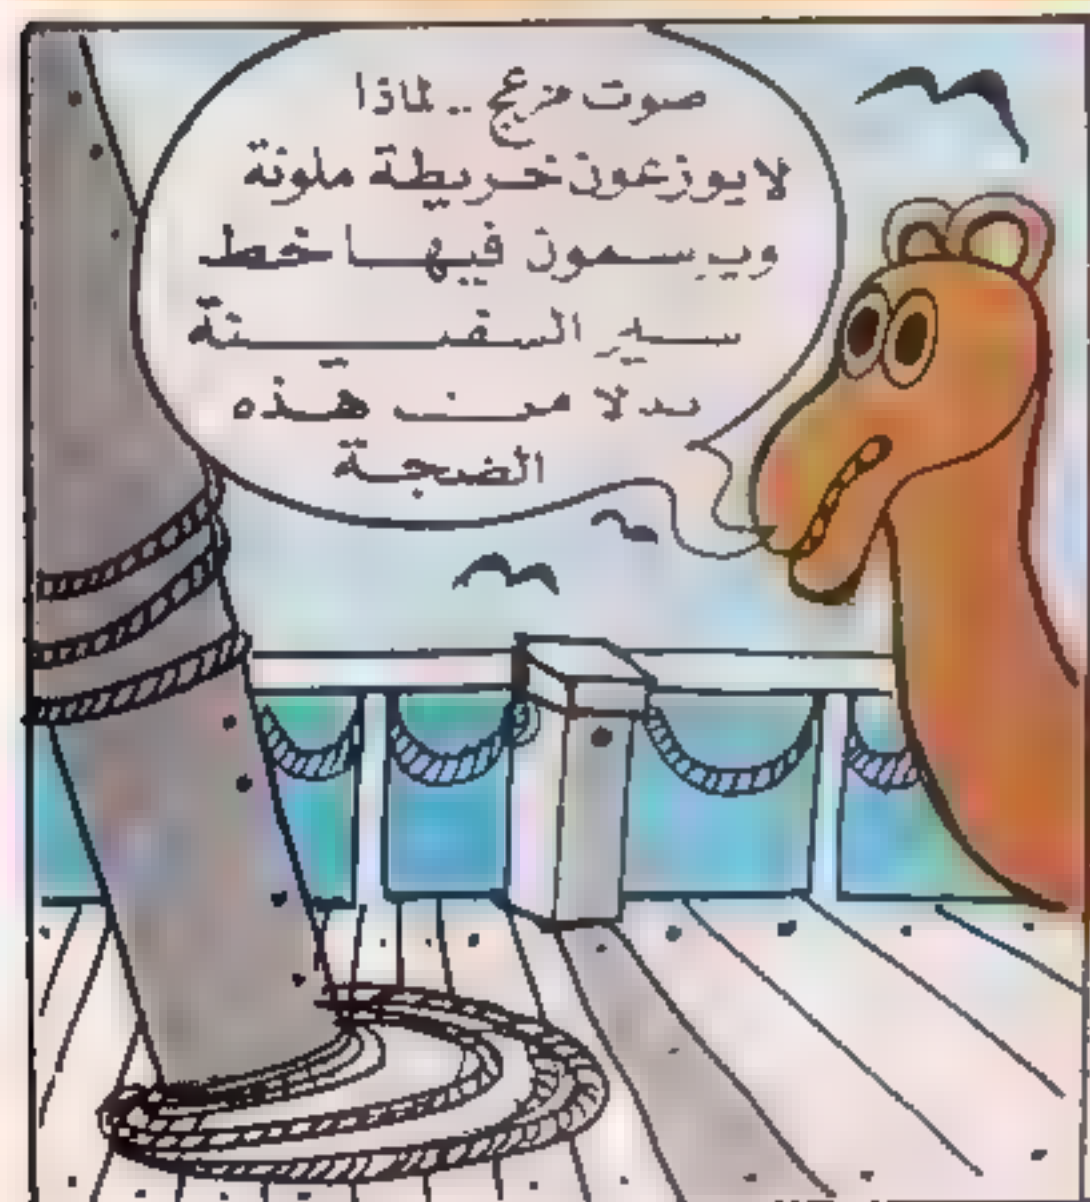 صوت مزعج .. لماذا
لا يوزعون خريطة ملونة
ويرسمون فيها خط
سير السفينة
بدلا من هذه
الضجة